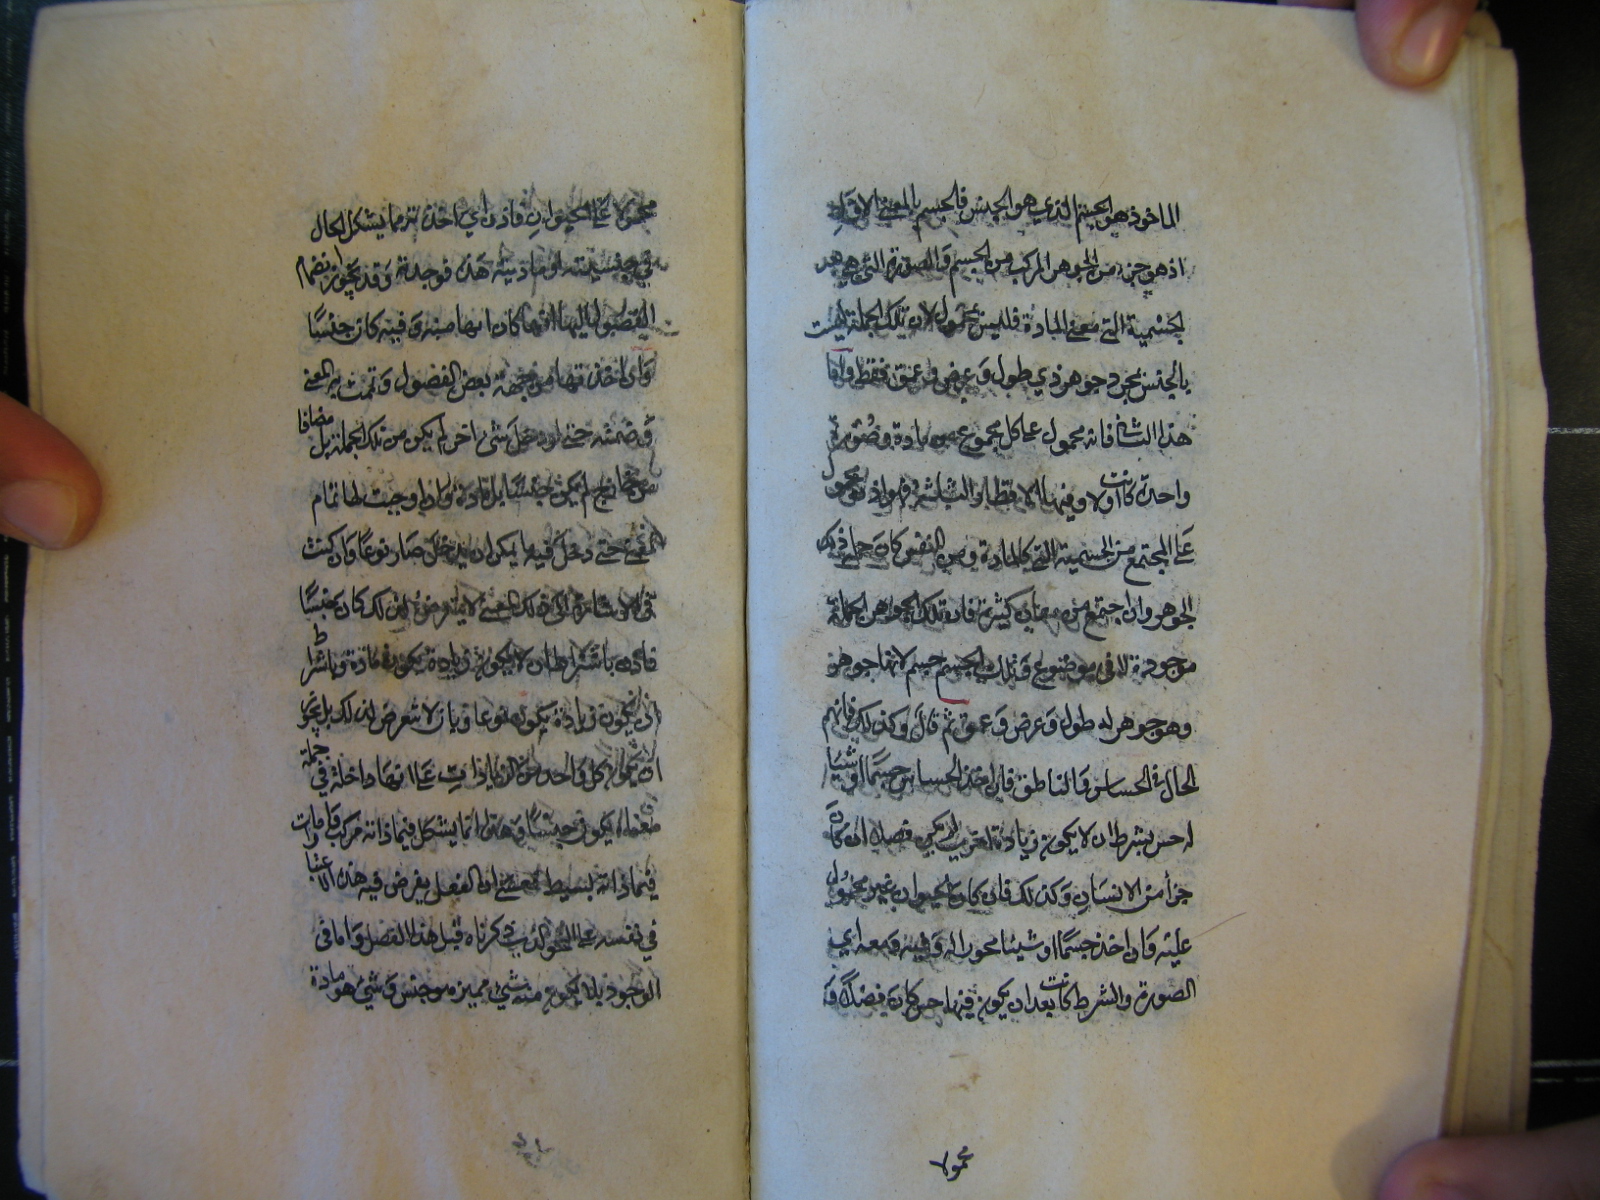 الماخوذ هو الجسم الذي هو الجنس فالجسم بالمعنى الاول
اذ هو جزء من الجوهر المركب من الجسم والصورة التي هي بعد
الجسمية التي بمعنى المادة فليس بمحمول لان تلك الجملة ليست
بالجنس مجرد جوهر ذي طول وعرض وعمق فقط واما
هذا الثاني فانه محمول على كل مجموع من مادة وصورة
واحدة كانت او
على المجتمع من الجسمية التي كالمادة ومن النفس كان جملة
الجوهر وان اجتمع من معان كثيرة فان تلك الجواهر الجملة
موجودة لا في موضوع وتلك الجسم جسم لانها جوهر
وهو جوهر له طول وعرض وعمق ثم قال وكذلك فانهم
الحال في الحساس والناطق فان اخذ الحساس جسما او شيئا
له حس بشرط ان لا يكون زيادة اخرى لم يكن فصلا ان كان
جزأ من الانسان وكذلك فان كان الحيوان غير محمول
عليه وان اخذ جسما او شيئا مجوزا له وفيه ومعه اي
الصورة والشرط كانت بعد ان يكون فيها حس كان فصلا و
محمولا
محمولا على الحيوان فاذن اي اخذته مما يشكل الحال
في جنسيته او مادية هذه فوجدته وقد يجوز انضمام
الفصول اليها ايها كان انها منه وفيه كان جنسا
وان اخذتها من جهة بعض الفصول وتممت به المعنى
وختمته حتى لو دخل شئ اخر لم يكن من تلك الجملة بل مضافا
من خارج لم يكن جنسا بل مادة وان اوجبت لها تمام
المعنى حتى دخل فيه ما يمكن ان يدخل صار نوعا وان كنت
في الاشارة الى ذلك المعنى لا تتعرض لذلك كان جنسا
فاذن باشتراط ان لا يكون زيادة يكون مادة وباشتراط
ان يكون زيادة يكون نوعا وبان لا تتعرض لذلك بل يجوز
ان يكون كل واحد من الزيادات على انها داخلة في جملة
معناه يكون جنسا وهذا انما يشكل فيما ذاته مركب واما
فيما ذاته بسيط فعسى ان العقل يفرض فيه هذه الاعتبارات
في نفسه على النحو الذي ذكرناه قبل هذا الفصل واما في
الوجود فلا يكون منه شئ مميز هو جنس وشئ هو مادة